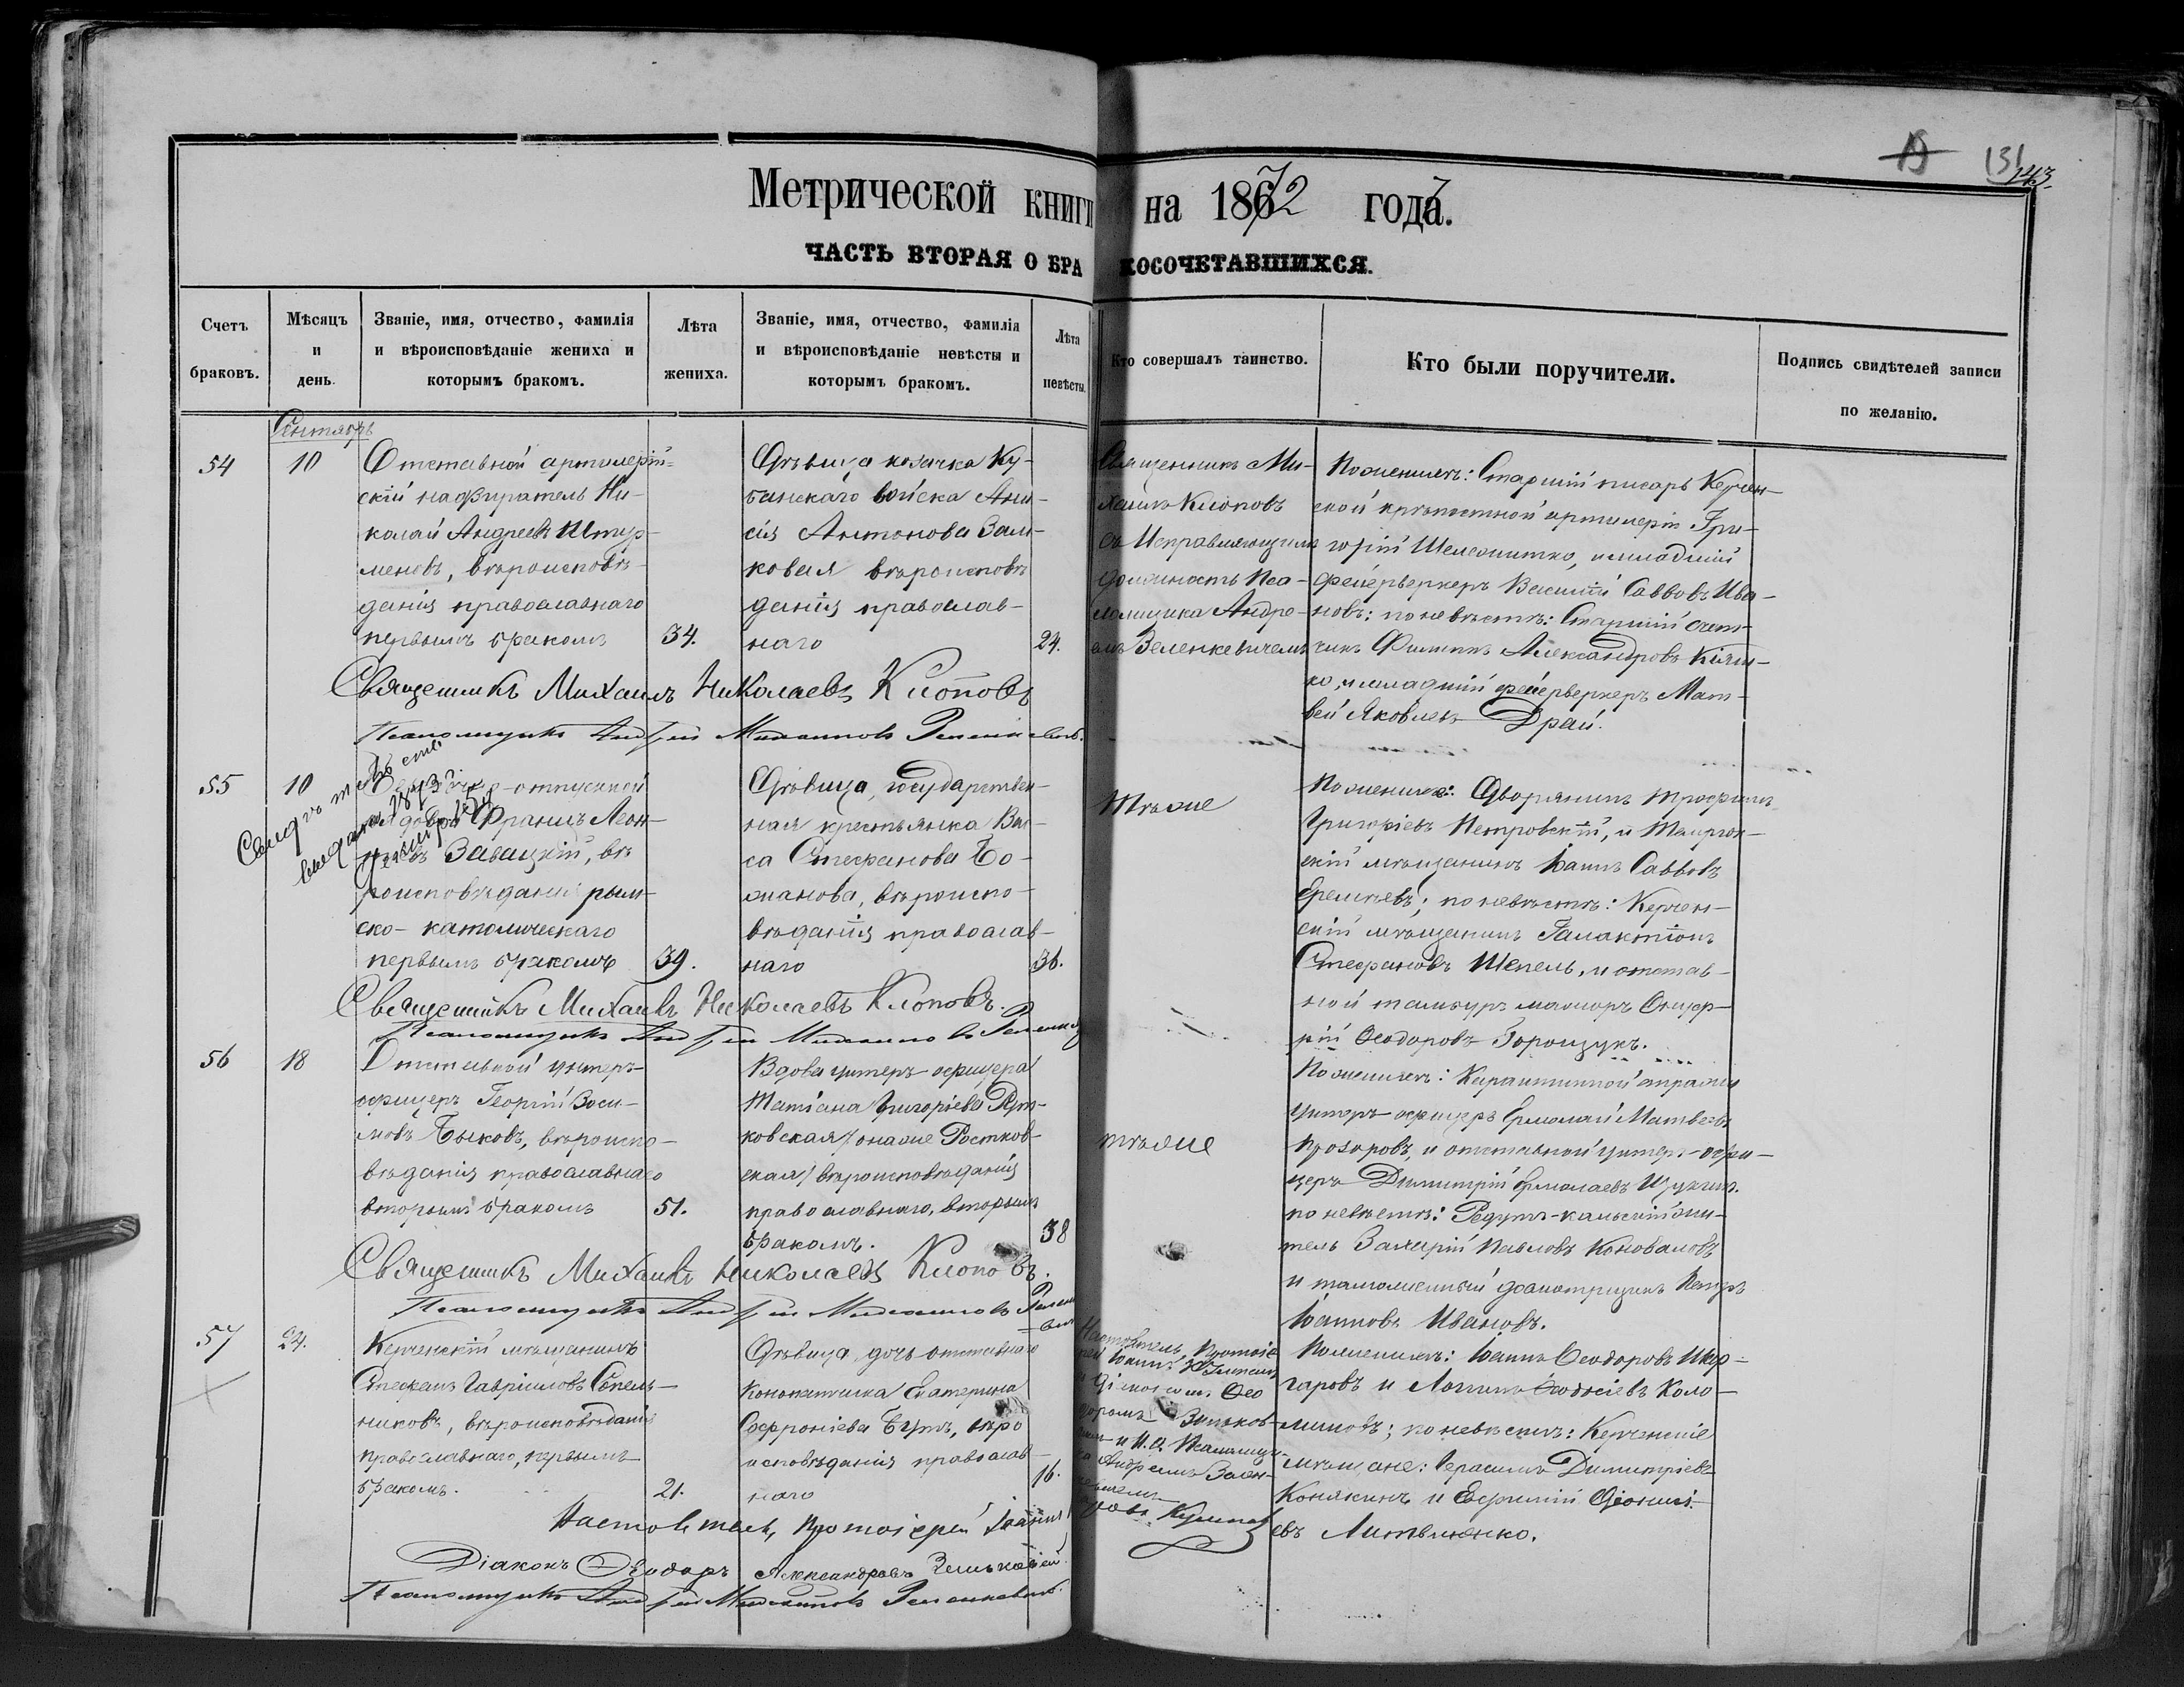 131
143.
Метрической книги на 1872 года.
ЧАСТЬ ВТОРАЯ О БРАКОСОЧЕТАВШИХСЯ.
Счетъ браковъ.
Мѣсяцъ и день.
Званіе, имя, отчество, фамилія и вѣроисповѣданіе жениха и которымъ бракомъ.
Лѣта жениха.
Званіе, имя, отчество, фамилія и вѣроисповѣданіе невѣсты и которымъ бракомъ.
Лѣта невѣсты.
Кто совершалъ таинство.
Кто были поручители.
Подпись свидѣтелей записи по желанію.
Сентябрь
54
10
Отставной артилерій-
скій надзиратель Ни-
колай Андреевъ
вѣроисповѣ-
данія православнаго
первымъ бракомъ
34.
Дѣвица козачка Ку-
банскаго войска Ани-
сія Антонова Зам-
ковая вѣроисповѣ
данія православ-
наго
24.
Священникъ Ми-
хаилъ Клоповъ
съ Исправляющимъ
должность Пса-
ломщика Андре-
емъ Зеленкевичемъ
По женихѣ: Старшій писарь Керчен-
ской крѣпостной артилеріи Гри-
горій младшій
фейерверкеръ Василій Саввовъ Ива-
новъ; по невѣстѣ: Старшій
Филиппъ Александровъ
ко, младшій фейерверкеръ Мат-
вей Яковлевъ Драй.
Священникъ Михаилъ Николаевъ Клоповъ
Псаломщикъ Андрей Зеленкевичъ.
55
10
отпускной
Францъ Леон-
Завацкій, вѣ
роисповѣданія рим-
ско-католическаго
первымъ бракомъ
39.
Дѣвица, государствен-
ная крестьянка Ва-
са Стефанова Бо-
жанова, вѣроиспо-
вѣданія православ-
наго
36.
Тѣже
По женихѣ: Дворянинъ Трофимъ
Григоріевъ Петровскій, и
скій мѣщанинъ Іоаннъ Саввовъ
Еремѣевъ; по невѣстѣ: Керчен-
скій мѣщанинъ Галактіонъ
Стефановъ Шепель, и отстав-
ной тамбуръ маіоръ Онуф-
рій Ѳеодоровъ
Священникъ Михаилъ Николаевъ Клоповъ.
Псаломщикъ Андрей
56
18
Отставной унтеръ-
офицеръ Георгій Зоси-
мовъ Быковъ, вѣроиспо-
вѣданія православнаго
вторымъ бракомъ
51.
Вдова унтеръ-офицера
Татіана Григоріева Рут-
ковская /онаже Ростков-
ская/ вѣроисповѣданія
православнаго, вторымъ
бракомъ.
38
тѣже
По женихѣ: Карантинной стражи
унтеръ-офицеръ Ермолай Матвеевъ
Прозоровъ, и отставной унтеръ-офи-
церъ Димитрій Ермолаевъ
по невѣстѣ: Редутъ-кальскій жи-
тель Захарій Павловъ Коноваловъ
и таможенный досмотрщикъ Петръ
Іоанновъ Ивановъ.
Священникъ Михаилъ Николаевъ Клоповъ.
Псаломщикъ Андрей
57
24.
Керченскій мѣщанинъ
Стефанъ Гавріиловъ
никовъ, вѣроисповѣданія
православнаго, первымъ
бракомъ.
21.
Дѣвица, дочь отставнаго
конопатчика Екатерина
Софроніева Бутъ, вѣро
исповѣданія православ-
наго
16.
Настоятель, Протоіе
рей Іоаннъ
Діакономъ Ѳео
доромъ
и И. д. Псаломщи-
ка Андреемъ Зелен-
кевичемъ
По женихѣ: Іоаннъ Ѳеодоровъ
и Логинъ Ѳеодосіевъ Коло-
миновъ; по невѣстѣ: Керченскіе
мѣщане: Герасимъ Димитріевъ
Конякинъ и Евфимій Діонисі-
евъ Литвиненко.
Настоятель, Протоіерей Іоаннъ
Діаконъ Ѳеодоръ Александровъ
Псаломщикъ Андрей Зеленкевичъ.